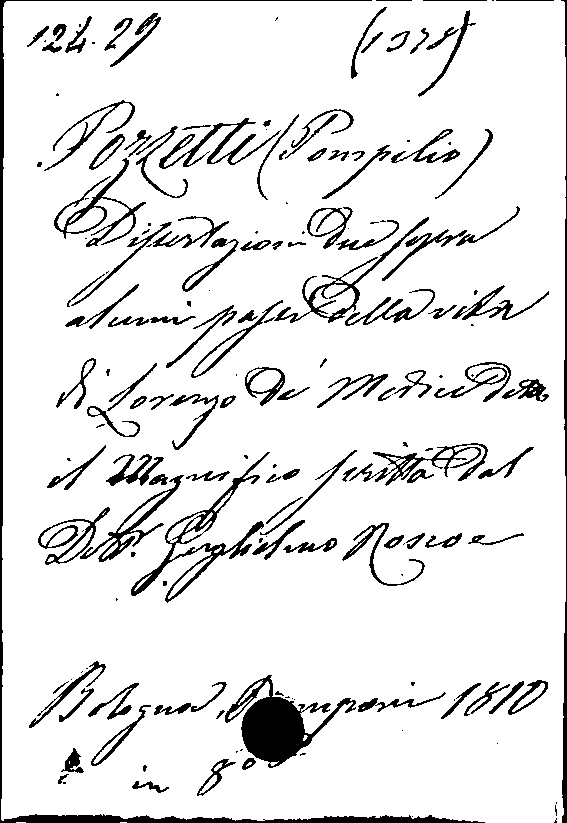 124. 29 (1378)
Pozzetti (Pompilio)
Dissertazioni due sopra
alcuni passi della vita
di Lorenzo de' Medici detto
il Magnifico scritta dal
Dott. Guglielmo Roscoe
Bologna, 1810
in 8º